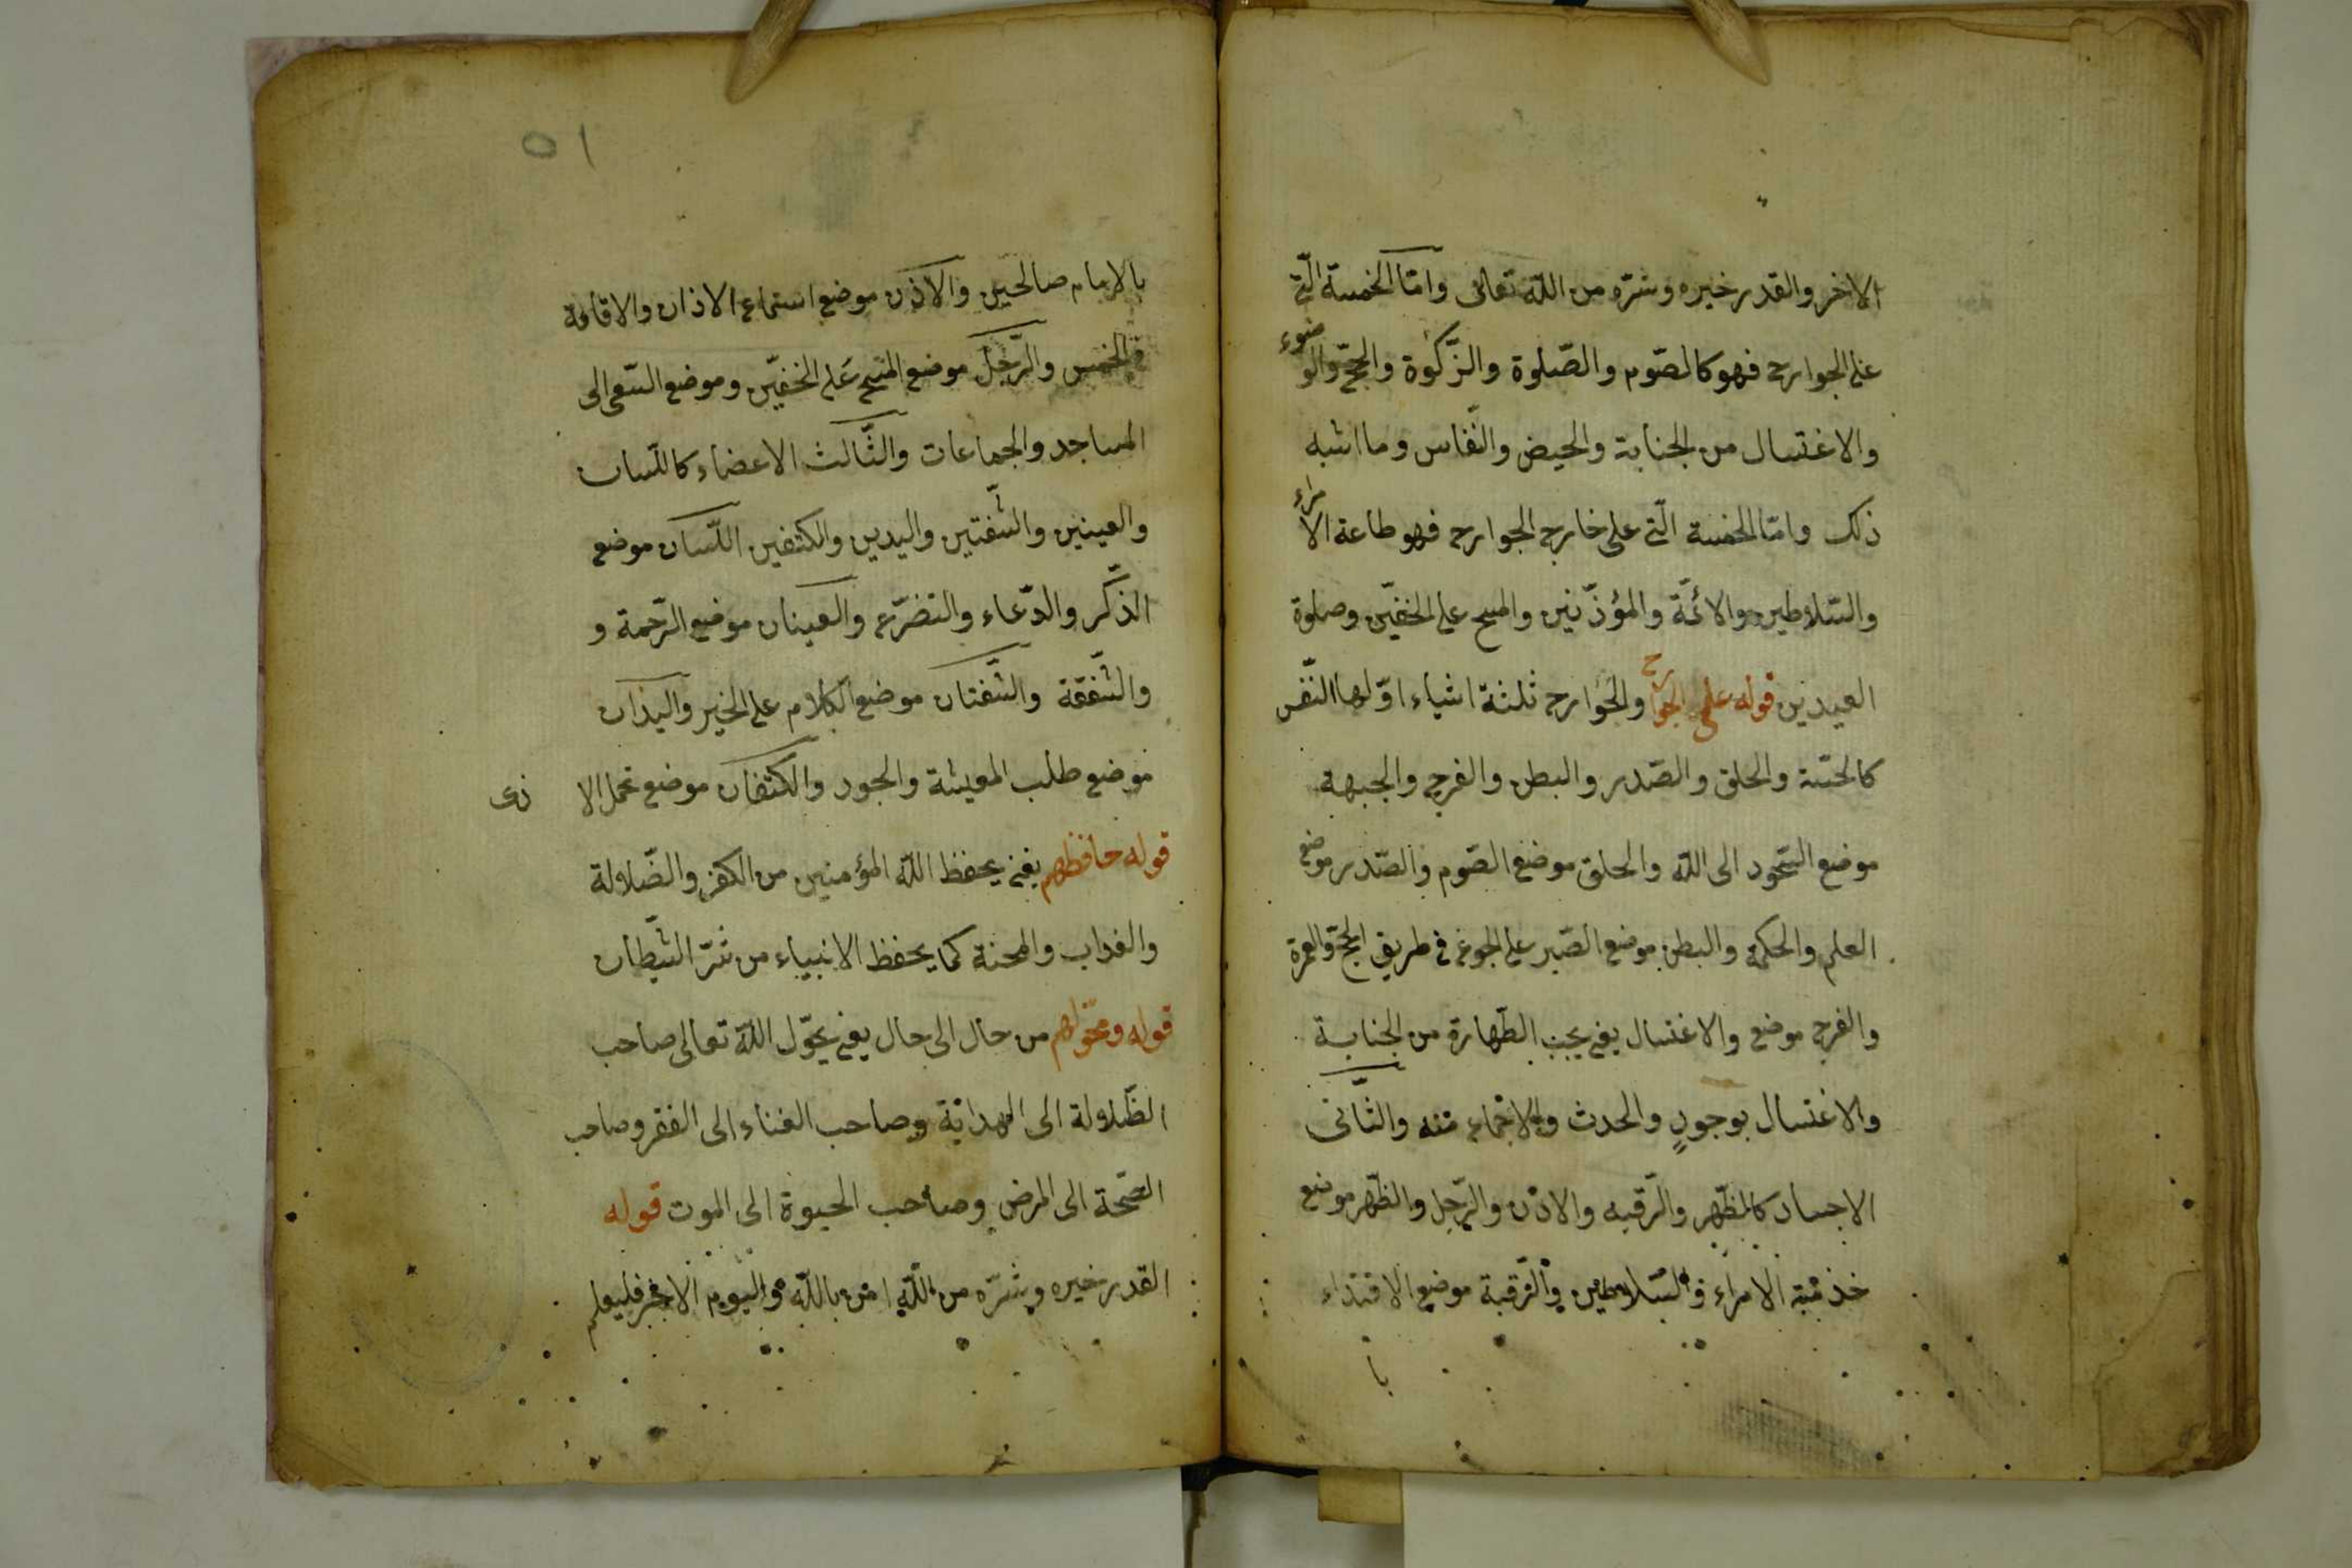 الاخر والقدر خيره وشرّه من اللّه تعالى وامّا الخمسة الّتى
على الجوارح فهو كالصّوم والصّلوة والزّكوة والحجّ والوضوء
والاغتسال من الجنابة والحيض والنّفاس وما اشبه
ذلك وامّا الخمسة الّتى على خارج الجوارح فهو طاعة الامراء
والسّلاطين والائمّة والمؤذّنين والمسح على الخفّين وصلوة
العيدين قوله على الجوارح والجوارح ثلثة اشياء اوّلها النّفس
والحلق والصّدر والبطن والفرج والجبهة
موضع السّجود الى اللّه والحلق موضع الصّوم والصّدر موضع
العلم والحكمة والبطن موضع الصّبر على الجوع فى طريق الحجّ والعمرة
والفرج موضع والاغتسال يعنى يجب الطّهارة من الجنابة
والاغتسال بوجود والحدث والاجماع منه والثّانى
الاجساد كالظّهر والرّقبه والاذن والرّجل والظّهر موضع
خذمته الامراء والسّلاطين والرّقبة موضع الاقتداء
با
٥١
بالامام صالحين والاذن موضع استماع الاذان والاقامة
فى الخمس والرّجل موضع المسح على الخفّين وموضع السّعى الى
المساجد والجماعات والثّالث الاعضاء كاللّسان
والعينين والشّفتين واليدين والكتفين اللّسان موضع
الذّكر والدّعاء والتضرّع والعينان موضع الرّحمة و
والشّفقة والشّفتان موضع الكلام على الخير واليدان
موضع طلب المعيشة والجود والكتفان موضع تحمل الاذى
قوله حافظهم يعنى يحفظ اللّه المؤمنين من الكفر والضّلالة
والعذاب والمحنة كما يحفظ الانبياء من شرّ الشّيطان
قوله ومحوّلهم من حال الى حال يعنى يحوّل اللّه تعالى صاحب
الظّلالة الى الهداية وصاحب الغناء الى الفقر وصاحب
الصّحة الى المرض وصاحب الحيوة الى الموت قوله
القدر خيره وشرّه من اللّه امن باللّه واليوم الاخر فليعلم